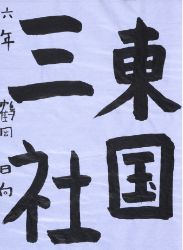 東国
三社
六年 鶴岡日向